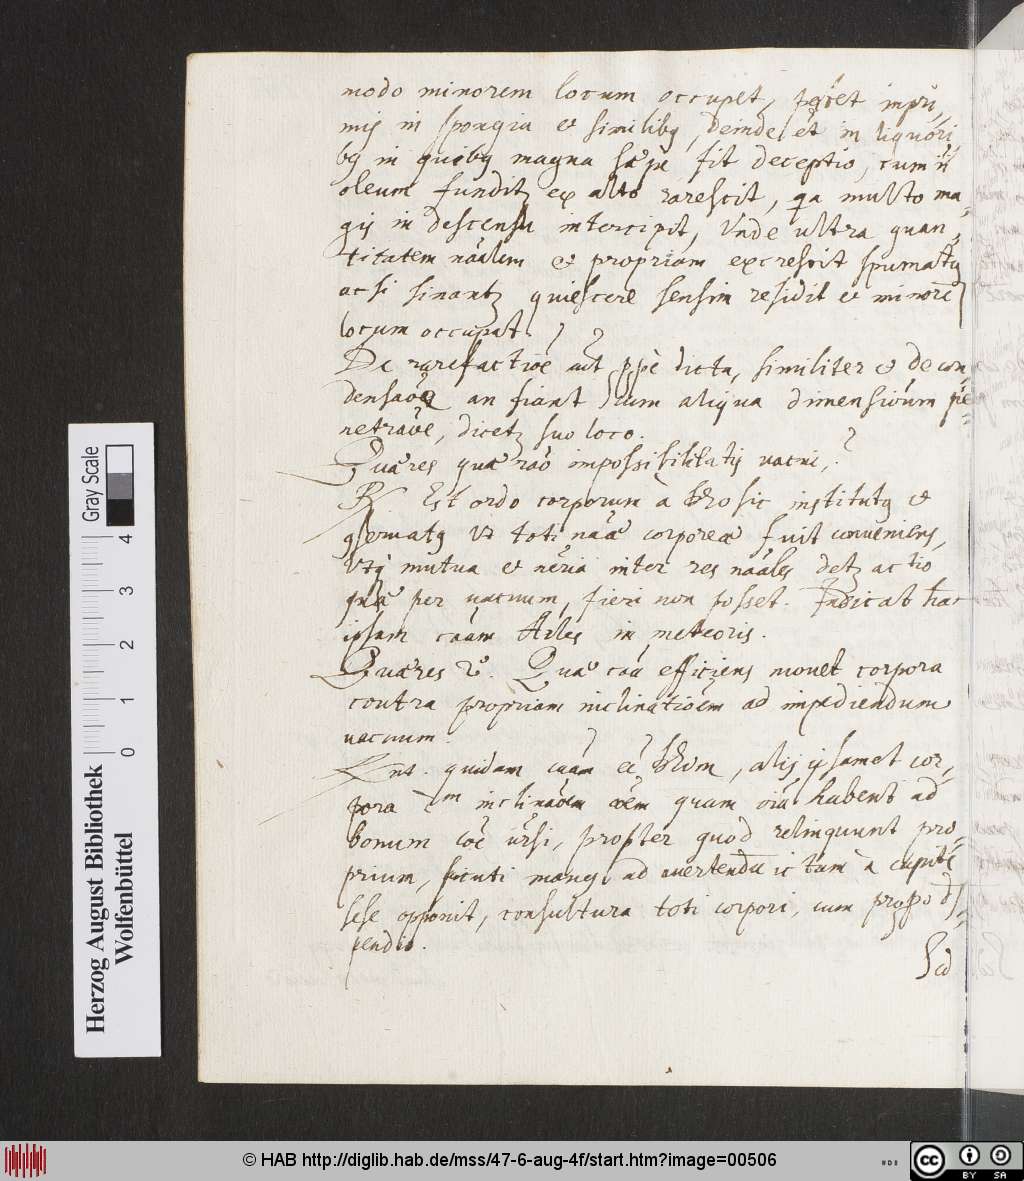 modo minorem locum occupet, patet impri,
mis in spongia et similibq, deinde et in liquori
bq in quibq magna sæpe fit deceptio, cum n̄
oleum funditz ex alto rarescit, qa multo ma,
gis in descensu intercipit, Vnde ultra quan,
titatem nāalem et propriam excrescit spumatū
ac si sinantz quiescere sensim residit et minorē
locum occupat.
De rarefactiōe aūt ppē dicta, similiter et de con,
densaōe an fiant sum aliqua dimensionum pē
netraōe, dicetz suo loco.
Quæres quæ raō impossibilitatis vacui,
R Est ordo corporum à sic institutq et
qseruatq Vt toti nāæ corporeæ fuit conueniens,
Vtq mutua et nēria inter res nāales detz actio
quæ per vacuum, fieri non posset. Indicat hac
ipsam caām Ariles in meteoris.
Quæres 2º. Quæ caā efficiens mouet corpora
contra propriam inclinatiōem ad impediendum
vacuum.
Ant. quidam caām eē, alij ipsamet cor,
pora inclinaōem quam oīa habent ad
bonum coē vrsi, propter quod relinquunt pro,
prium, sicuti manq ad auertendū ictum à capite
sese opponit, consultura toti corpori, cum propo dis,
pendio.
Sed
Herzog August Bibliothek
Wolfenbüttel
Gray Scale
0 1 2 3 4
© HAB http://diglib.hab.de/mss/47-6-aug-4f/start.htm?image=00506
cc BY SA